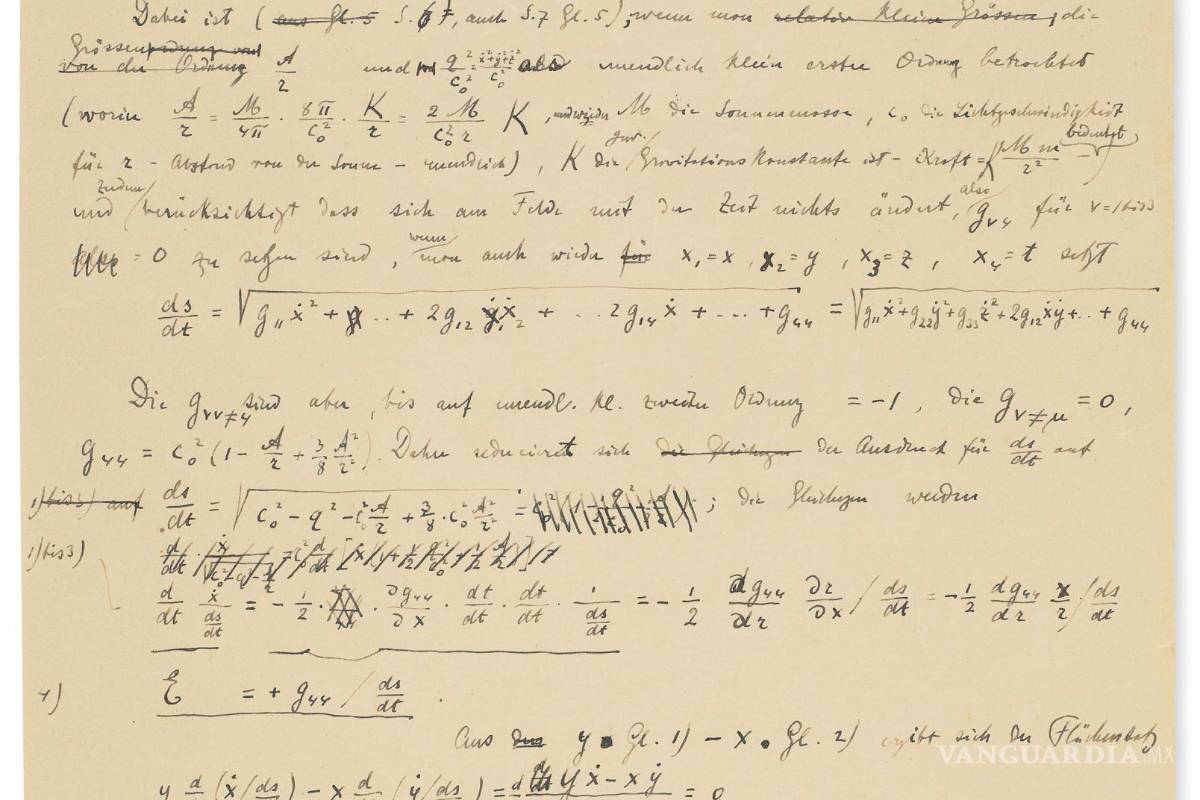 Dabei ist (aus Gl. 5 S. 7, auch S. 7 Gl. 5), wenn man relativ kleine Grössen, die
Grössenordnung und
von der Ordnung A/r und q²/c₀² = (ẋ²+ẏ²+ż²)/c₀² als unendlich klein erster Ordnung betrachtet
(worin A/r = M/4π · 8π/c₀² · K/r = 2M/(c₀² r) K, und wieder M die Sonnenmasse, c₀ die Lichtgeschwindigkeit
für r - Abstand von der Sonne - unendlich), K die gew. Gravitationskonstante ist - Kraft = (K M m/r² -) bedeutet
und zudem berücksichtigt dass sich am Felde mit der Zeit nichts ändert, also g_ν4 für ν=1 bis 3
= 0 zu setzen sind, wenn man auch wieder für x₁=x, x₂=y, x₃=z, x₄=t setzt
ds/dt = √(g₁₁ẋ² + .. + 2g₁₂ẋ₁ẋ₂ + . .. 2g₁₄ẋ + ... + g₄₄) = √(g₁₁ẋ²+g₂₂ẏ²+g₃₃ż²+2g₁₂ẋẏ+..+g₄₄)
Die g_νν≠4 sind aber, bis auf unendl. kl. zweiter Ordnung = -1, die g_ν≠μ = 0,
g₄₄ = c₀²(1 - A/r + 3/8 A²/r²). Daher reducieret sich die Gleichungen der Ausdruck für ds/dt auf
1) bis 3) auf ds/dt = √(c₀² - q² - c₀² A/r + 3/8 · c₀² A²/r²) = ; die Gleichungen werden
1) bis 3)
d/dt ẋ/(ds/dt) = - 1/2 · · ∂g₄₄/∂x · dt/dt · dt/dt · 1/(ds/dt) = - 1/2 ∂g₄₄/∂r ∂r/∂x / ds/dt = - 1/2 dg₄₄/dr x/r / ds/dt
4) E = + g₄₄ / ds/dt .
Aus den y • Gl. 1) - x • Gl. 2) ergibt sich der Flächensatz
y d/dt (ẋ/ds/dt) - x d/dt (ẏ/ds/dt) = d/dt yẋ - xẏ = 0
VANGUARDIA|MX